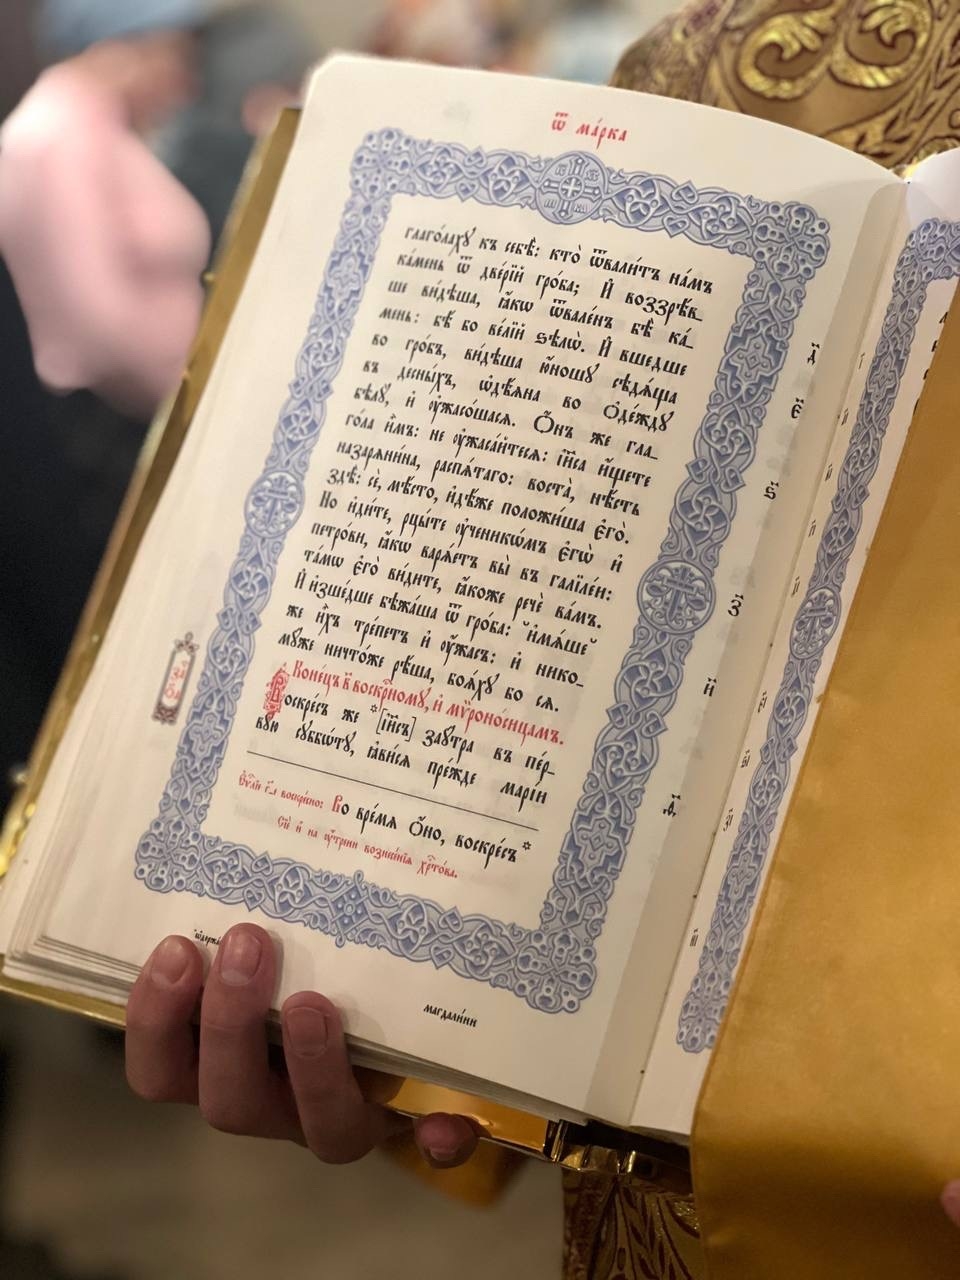 Ѿ ма́рка
глаго́лахꙋ къ себѣ̀: кто̀ ѿвали́тъ на́мъ
ка́мень ѿ две́рїй гро́ба; И҆ воззрѣ́в_
ше ви́дѣша, ꙗ҆́кѡ ѿвале́нъ бѣ̀ ка́_
мень: бѣ́ бо ве́лїй ѕѣлѡ̀. И҆ вше́дше
во гро́бъ, ви́дѣша ю҆́ношꙋ сѣдѧ́ща
въ десны́хъ, ѡ҆дѣ́ѧна во ѻ҆де́ждꙋ
бѣ́лꙋ, и҆ ᲂу҆жасо́шасѧ. Ѻ҆́нъ же гла_
го́ла и҆̀мъ: не ᲂу҆жаса́йтесѧ: і҆и҃са и҆́щете
назарѧни́на, распѧ́таго: воста̀, нѣ́сть
здѣ̀: сѐ, мѣ́сто, и҆дѣ́же положи́ша є҆го̀.
Но и҆ди́те, рцы́те ᲂу҆ченикѡ́мъ є҆гѡ̀ и҆
петро́ви, ꙗ҆́кѡ варѧ́етъ вы̀ въ галїле́и:
та́мѡ є҆го̀ ви́дите, ꙗ҆́коже речѐ ва́мъ.
И҆ и҆зше́дше бѣжа́ша ѿ гро́ба: и҆мѧ́ше
же и҆̀хъ тре́петъ и҆ ᲂу҆́жасъ: и҆ нико_
мꙋ́же ничто́же рѣ́ша, боѧ́хꙋ бо сѧ.
Коне́цъ в҃ воскр҇номꙋ, и҆ мѷроно́сицамъ.
Воскре́съ же * [і҆и҃съ] заꙋ́тра въ пе́р_
вꙋю сꙋббѡ́тꙋ, ꙗ҆ви́сѧ пре́жде марі́и
Є҆ѵⷢ҇лїе г҃ воскрⷭ҇но: Во вре́мѧ ѻ҆́но, воскре́съ *
Сїѐ и҆ на ᲂу҆́трени вознесе́нїѧ хрⷭ҇то́ва.
магдали́ни